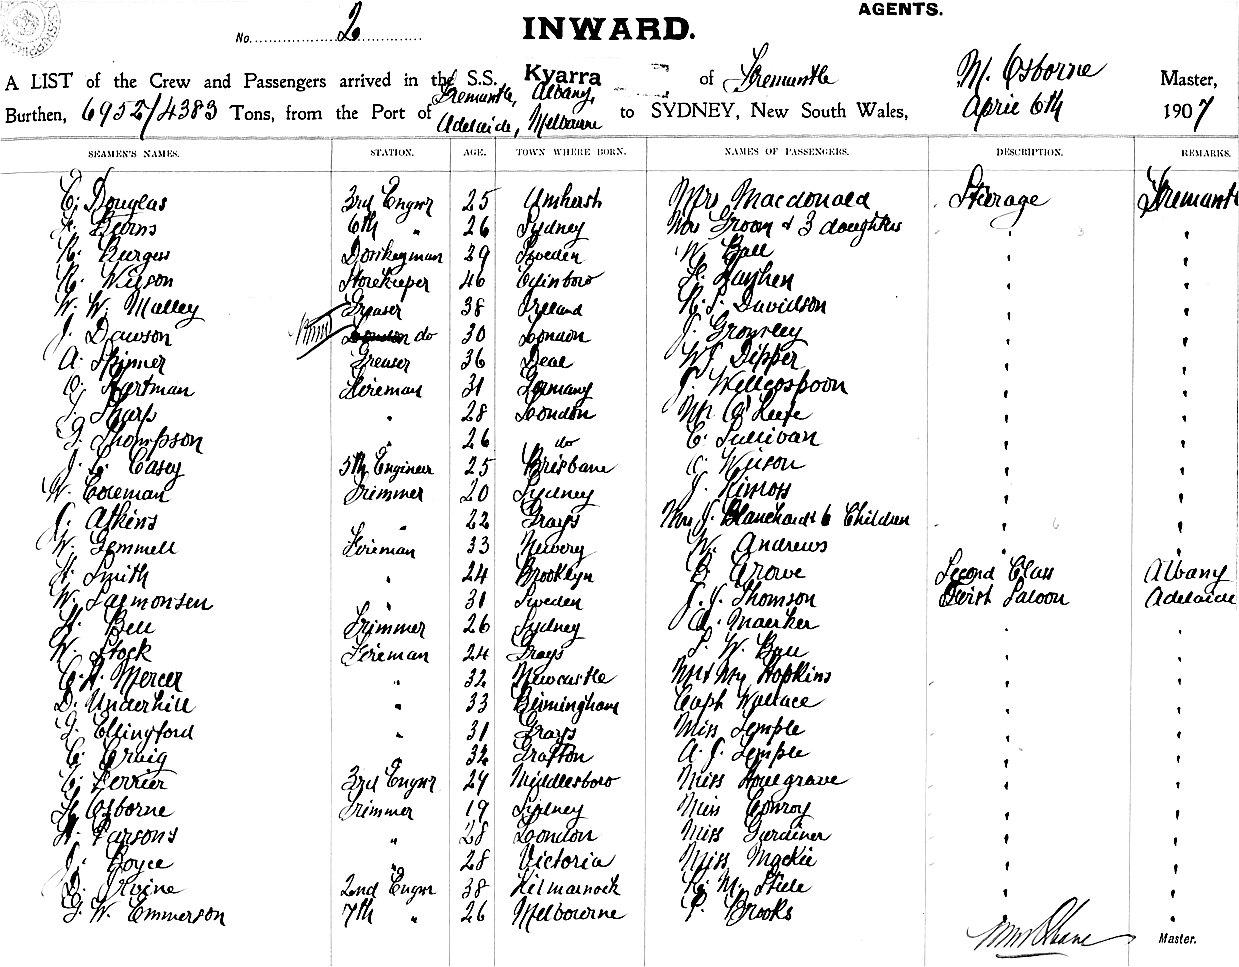 AGENTS.
No. 2 INWARD.
A LIST of the Crew and Passengers arrived in the S.S. Kyarra of Fremantle M. Osborne Master,
Burthen, 6952/4383 Tons, from the Port of Fremantle, Albany, Adelaide, Melbourne to SYDNEY, New South Wales, April 6th 1907
SEAMEN'S NAMES. STATION. AGE. TOWN WHERE BORN. NAMES OF PASSENGERS. DESCRIPTION. REMARKS.
C. Douglas 3rd Engnr 25 Amherst Mrs Macdonald Steerage Fremantle
Kerns 6th " 26 Sydney Mrs Groom & 3 daughters " "
R. Burgess Donkeyman 29 Sweden W. Ball " "
R. Wilson Storekeeper 46 Edinboro " "
W. W. Malley Greaser 38 Ireland R. S. Davidson " "
J. Dawson do 30 London J. " "
A. Skinner Greaser 36 Deal W. Dipper " "
O. Hartman Fireman 31 Germany J. " "
J. Sharp " 28 London Mr O'Keefe " "
G. Thompson " 26 do C. Sullivan " "
J. L. Casey 5th Engineer 25 Brisbane C. Wilson " "
W. Coleman Trimmer 20 Sydney J. " "
J. Atkins " 22 Grays Mrs J. Blanchard & 6 Children " "
W. Gemmell Fireman 33 Newery W. Andrews " "
H. Smith " 24 Brooklyn B. Crowe Second Class Albany
W. Salmonsen " 31 Sweden J. J. Thomson First Saloon Adelaide
H. Bell Trimmer 26 Sydney A. Maerker " "
W. Stock Fireman 24 Grays S. W. Ball " "
C. H. Mercer " 32 Newcastle Mr & Mrs Hopkins " "
D. Underhill " 33 Birmingham Capt Wallace " "
G. Ellingford " 31 Grays Miss Temple " "
C. Craig " 32 Grafton A. J. Temple " "
C. Ferrier 3rd Engnr 29 Middlesboro Miss " "
H. Osborne Trimmer 19 Sydney Miss Conroy " "
H. Parsons " 28 London Miss Gardiner " "
J. Boyce " 28 Victoria Miss Mackie " "
D. Irvine 2nd Engnr 38 Kilmarnock R. M. Steele " "
G. W. Emmerson 7th " 26 Melbourne P. Brooks " "
Master.